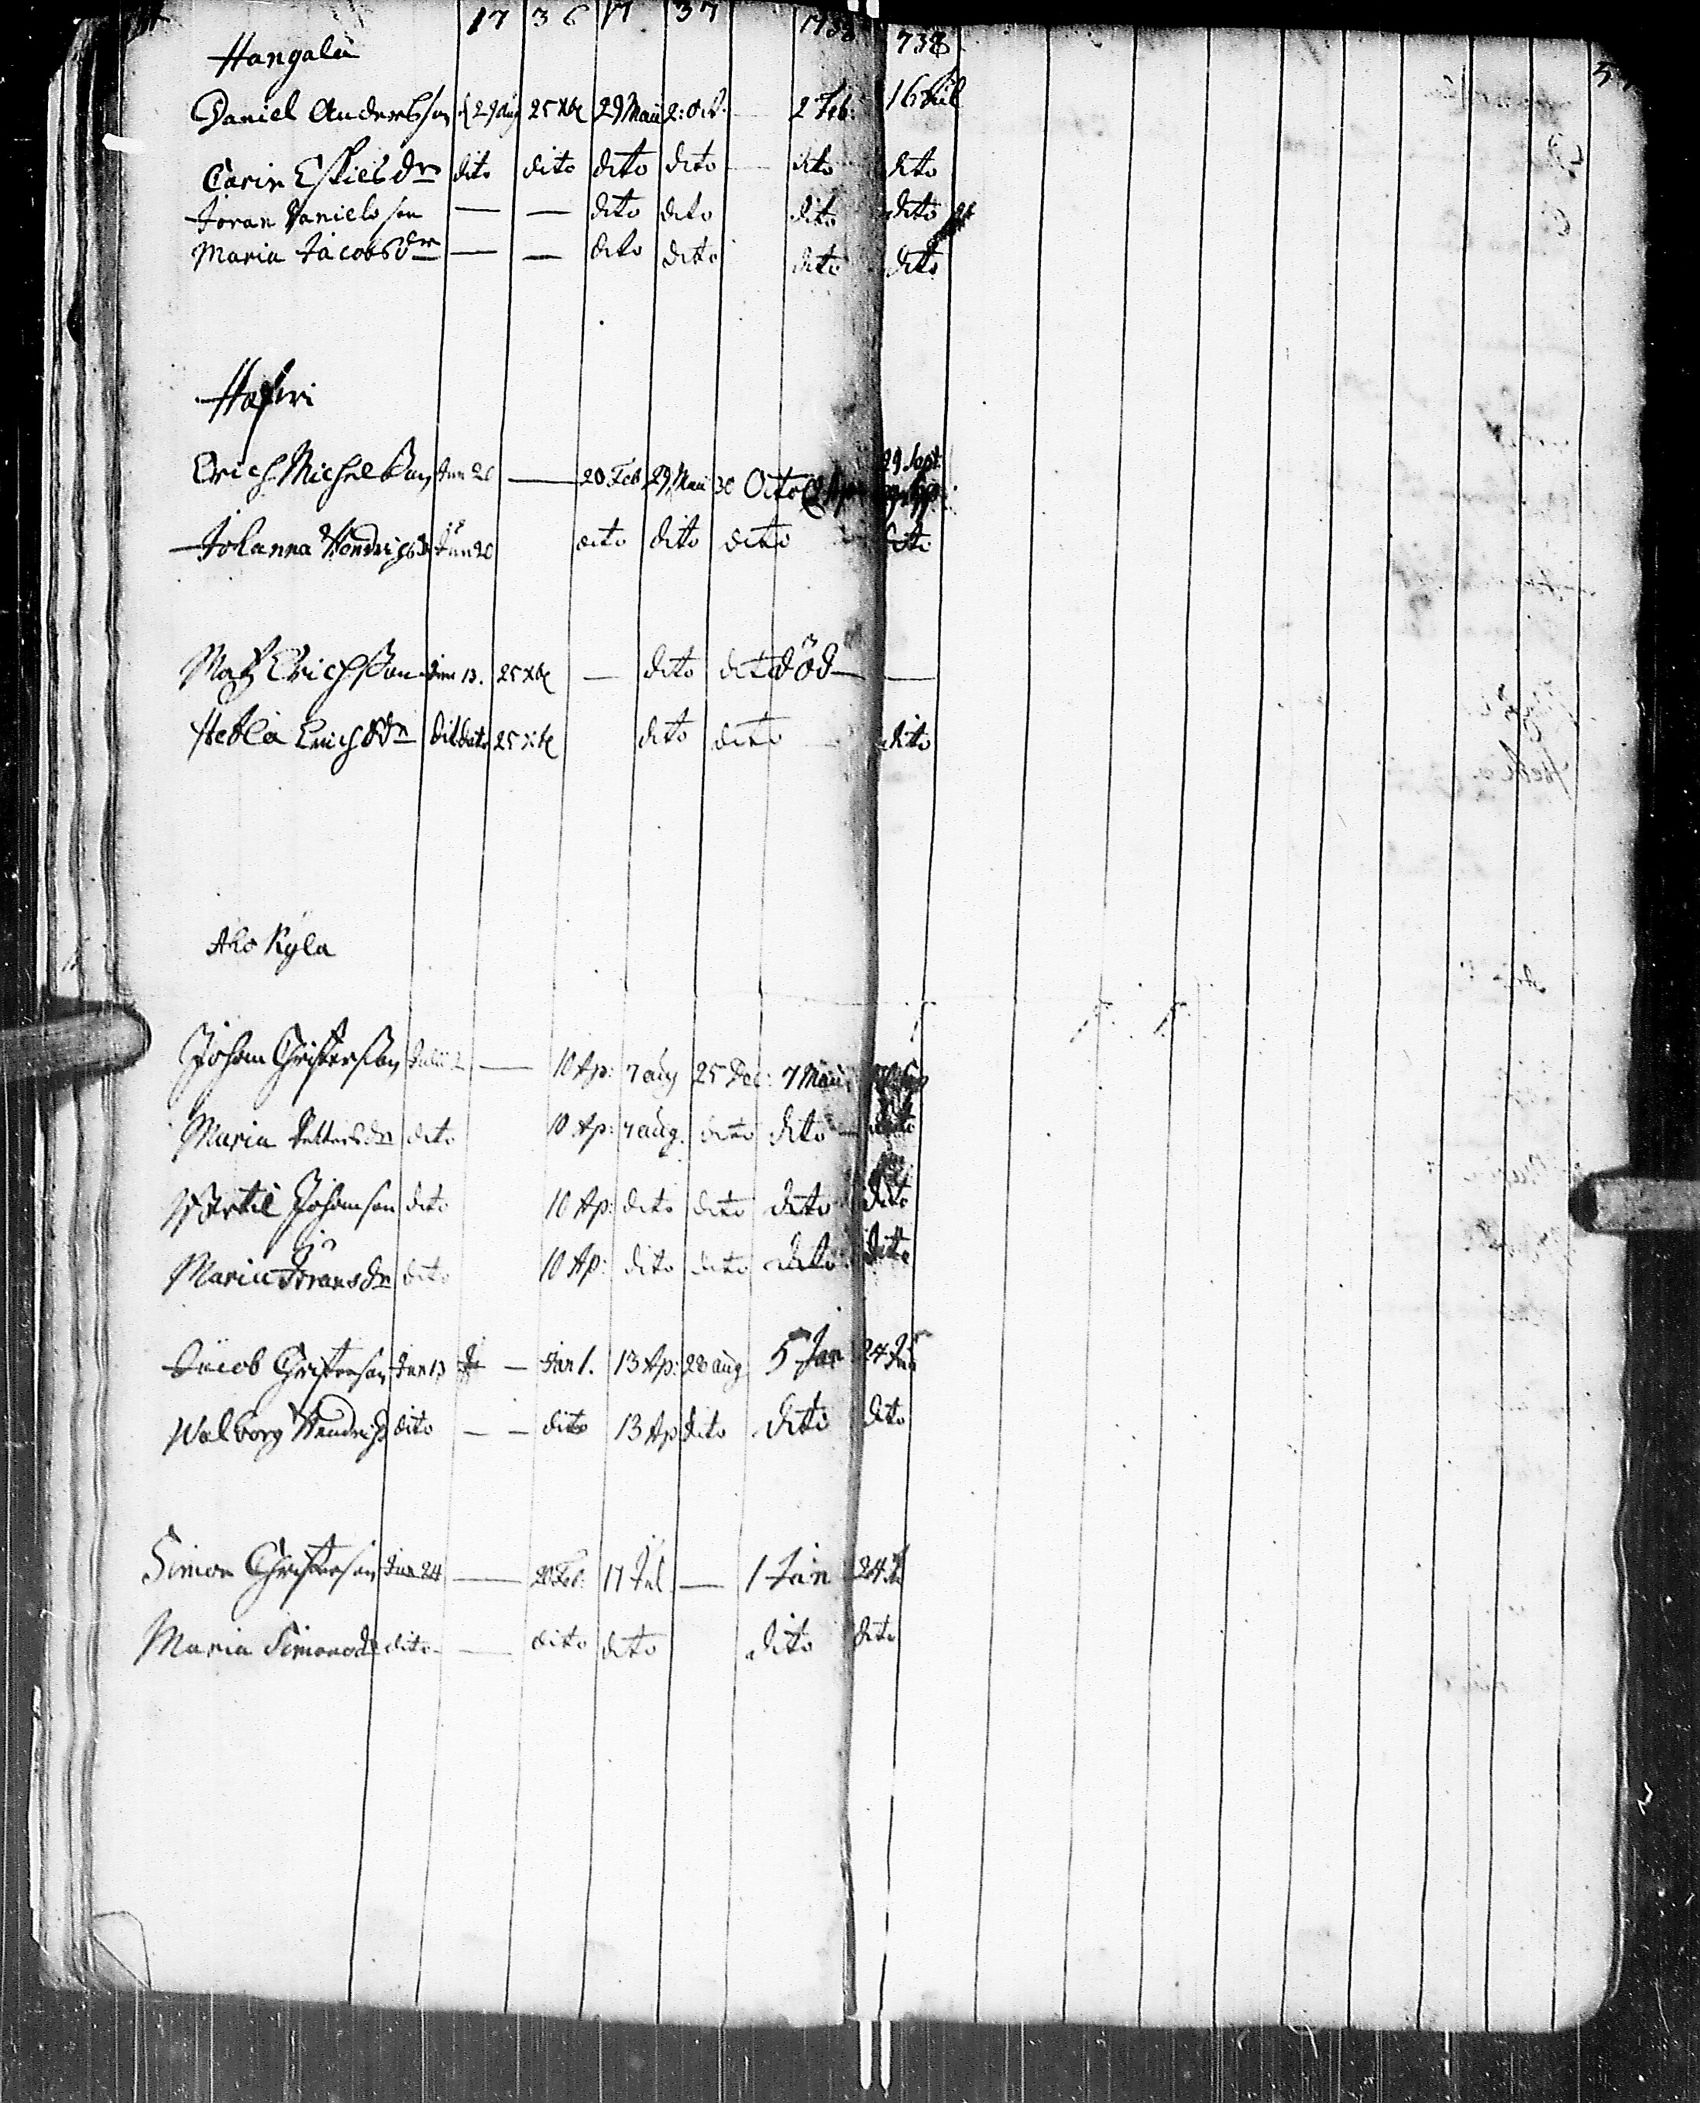 1736 17 37 1738 738 5
Hangala
Daniel Andersson 29 Aug 25 Xbr 29 Maii 2: Oct. 2 Feb: 16 Jul
Carin Eskils dr dito dito dito dito dito dito
Jöran Daniels son — — dito dito dito dito
Maria Jacobs dr — — dito dito dito dito
Erich Michelson Jun 20 — 20 Feb 29 Maii 30 Octo 29 Sept:
Johanna Hendrichs dr Jun 20 dito dito dito dito
Matz Erichson Jun 13. 25 Xbr — dito dito död — —
Hebla Erichs dr dito 25 Xbr dito dito dito
Aho Kyla
Johan Christerson Julii 2 — 10 Ap: 7 aug 25 Dec: 7 Maii
Maria Petters dr dito 10 Ap: 7 aug. dito dito dito
Bertil Johanson dito 10 Ap: dito dito dito dito
Maria Jörans dr dito 10 Ap: dito dito dito dito
Jacob Christerson Jun 13 — Jan 1. 13 Ap: 28 aug 5 Jan 24 Jun
Walborg Hendrichs dito — — dito 13 Ap dito dito dito
Simon Christerson Jun 24 — 20 Feb: 17 Jul — 1 Jan 24
Maria Simons dr dito — dito dito dito dito